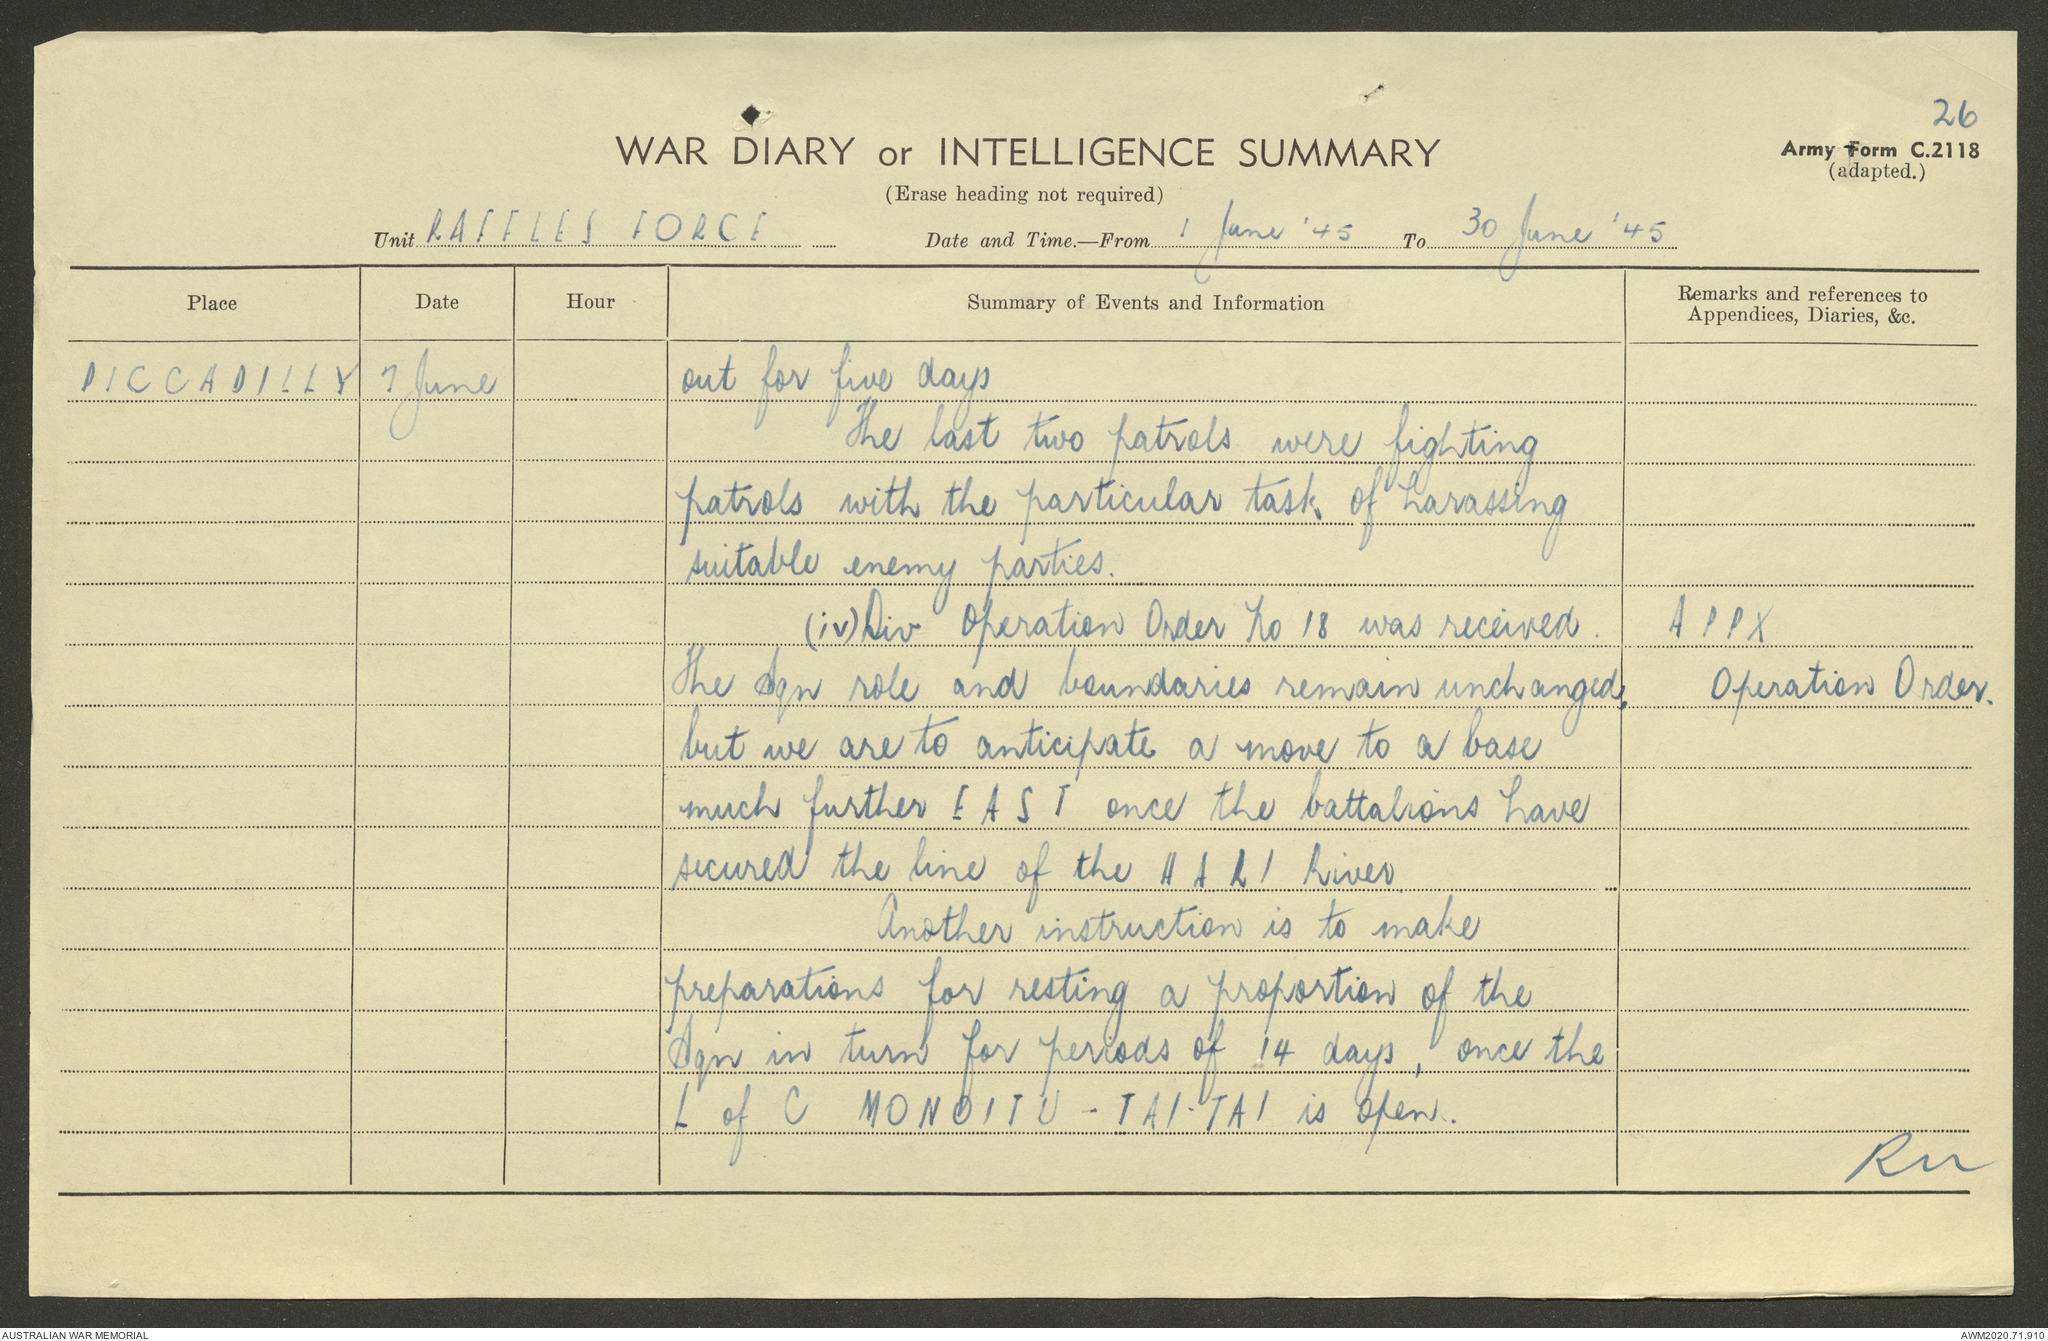 26
WAR DIARY or INTELLIGENCE SUMMARY
Army Form C.2118
(adapted.)
(Erase heading not required)
Unit RAFFLES FORCE Date and Time.—From 1 June '45 To 30 June '45
Place Date Hour Summary of Events and Information Remarks and references to
Appendices, Diaries, &c.
PICCADILLY 7 June out for five days
The last two patrols were fighting
patrols with the particular task of harassing
suitable enemy parties.
(iv) Div Operation Order No 18 was received. APPX
The Sqn role and boundaries remain unchanged, Operation Order.
but we are to anticipate a move to a base
much further EAST once the battalions have
secured the line of the HARI River.
Another instruction is to make
preparations for resting a proportion of the
Sqn in turn for periods of 14 days, once the
L of C MONOITU - TAI-TAI is open.
AUSTRALIAN WAR MEMORIAL
AWM2020.71.910